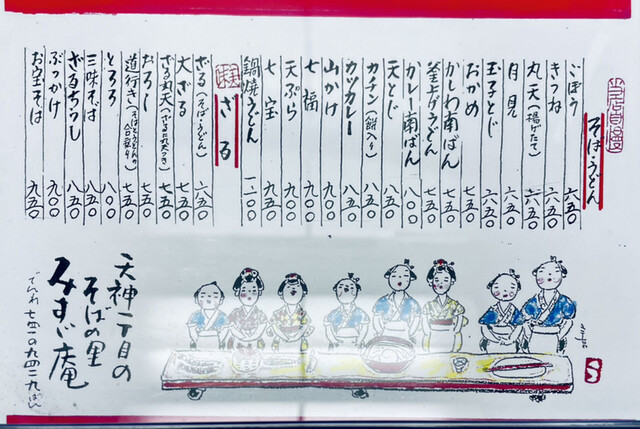 当店自慢
そば・うどん
ごぼう 六五〇
きつね 六五〇
丸天(揚げたて) 六五〇
月見 六五〇
玉子とじ 六五〇
おかめ 七五〇
かしわ南ばん 七五〇
釜上げうどん 六五〇
カレー南ばん 八〇〇
天とじ 八五〇
カチン(餅入り) 八五〇
カツカレー 八五〇
山かけ 九〇〇
七福 九〇〇
天ぷら 九〇〇
七宝 九五〇
鍋焼うどん 一、一〇〇
美味
ざる
ざる(そば・うどん) 六五〇
大ざる 七五〇
ざる丸天 七五〇
おろし 七五〇
道行き(そばとうどんの合盛り) 七五〇
とろろ 八〇〇
三味そば 八五〇
ざるちらし 八五〇
ぶっかけ 九五〇
お宝そば 九五〇
天神一丁目の
そばの里
みすゞ庵
でんわ 七四一の九四二九ばん